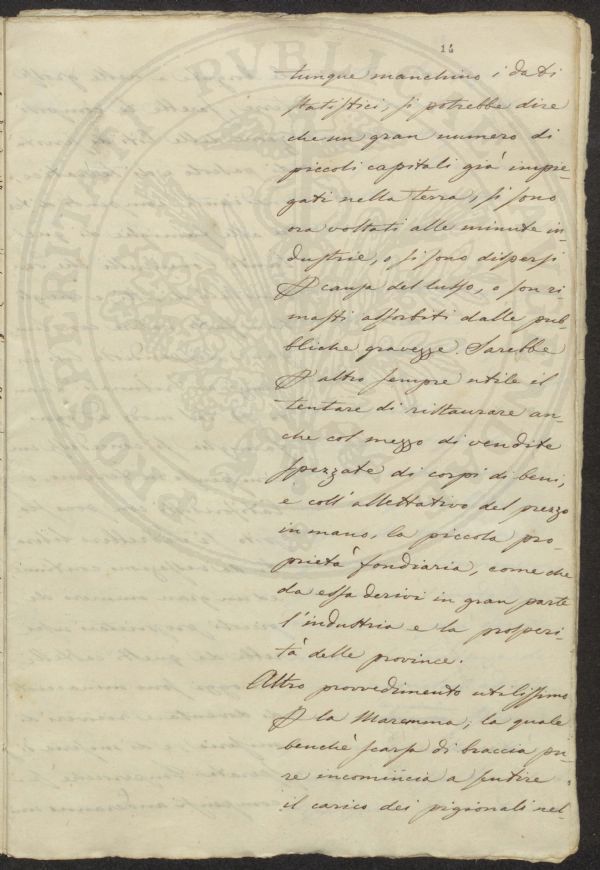 14
tunque manchino i dati
statistici, si potrebbe dire
che un gran numero di
piccoli capitali già impie-
gati nella terra, si sono
ora voltati alle minute in-
dustrie, o si sono dispersi
P causa del lusso, o son ri-
masti assorbiti dalle pub-
bliche gravezze. Sarebbe
P altro sempre utile il
tentare di ristaurare an-
che col mezzo di vendite
spezzate di corpi di beni,
e coll'allettativo del prezzo
in mano, la piccola pro-
prietà fondiaria, come che
da essa derivi in gran parte
l'industria e la prosperi-
tà delle province.
Altro provvedimento utilissimo
P la Maremma, la quale
benchè scarsa di braccia pu-
re incomincia a sentire
il carico dei pigionali nel-
PROSPERITATI PVBLICAE